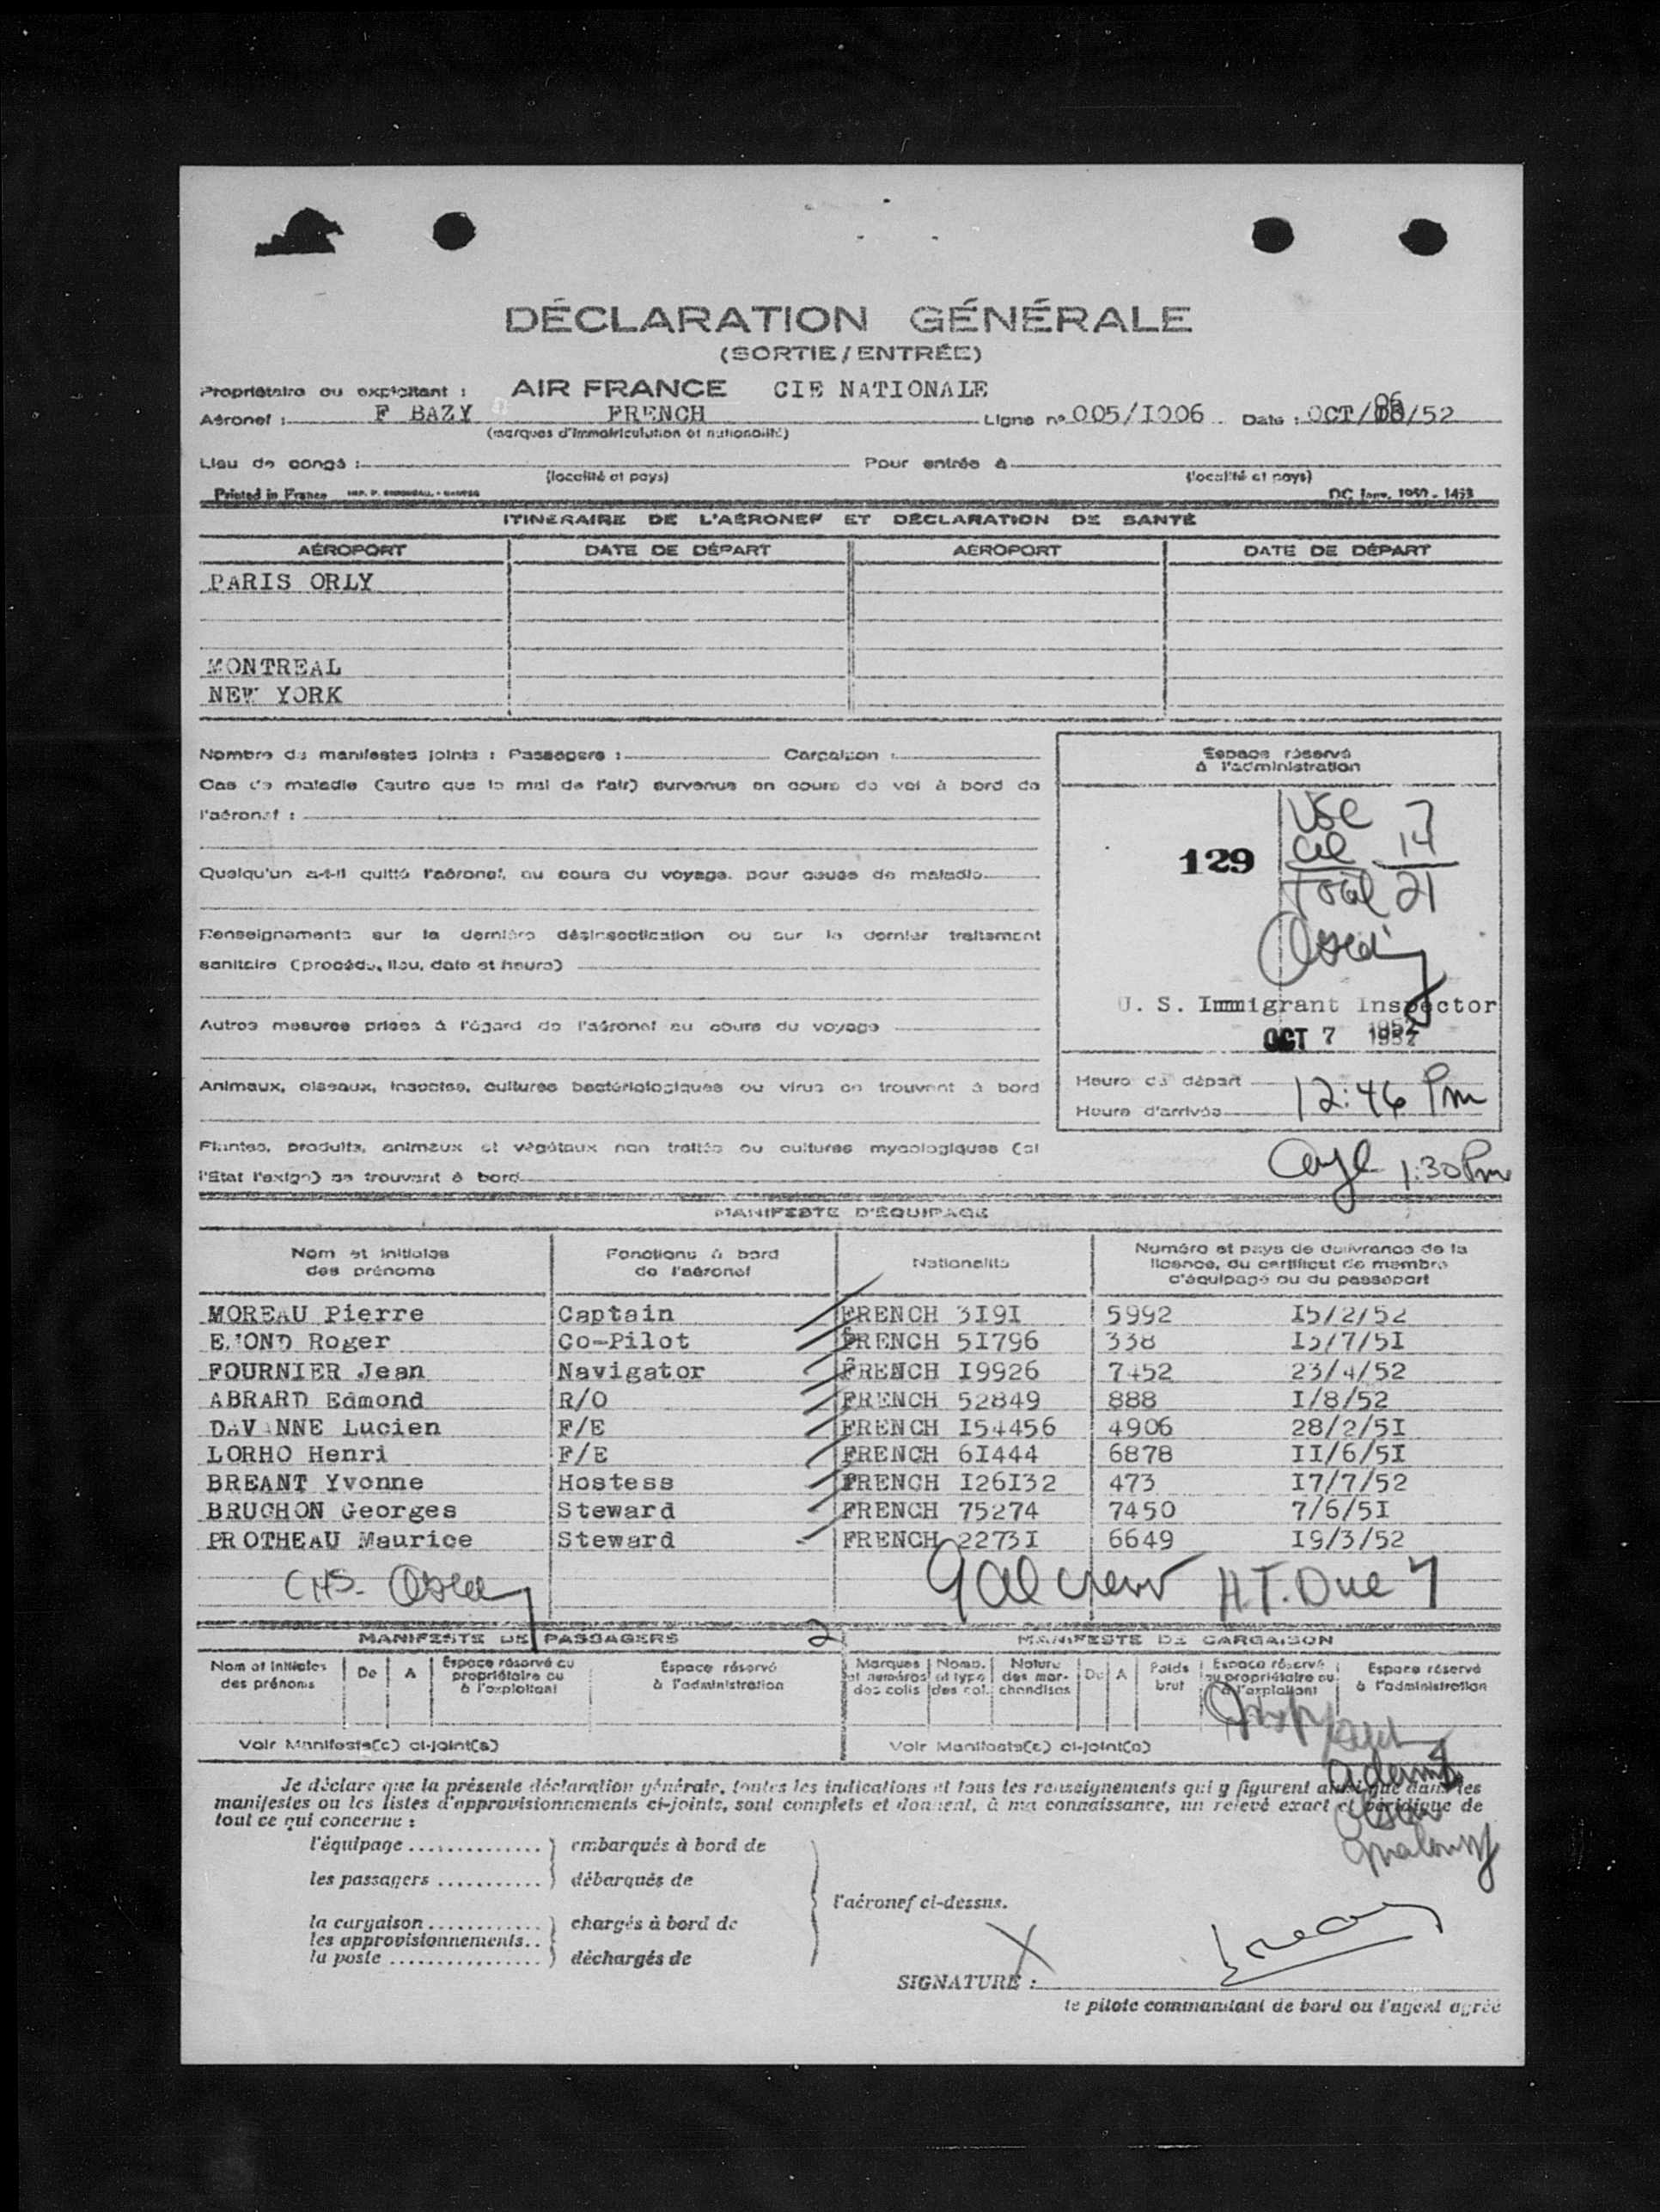 DÉCLARATION GÉNÉRALE
(SORTIE/ENTRÉE)
Propriétaire ou exploitant : AIR FRANCE CIE NATIONALE
Aéronef : F BAZY FRENCH Ligne nº 005/I006 Date : OCT/06/52
(marques d'immatriculation et nationalité)
Lieu de congé : Pour entrée à
(localité et pays) (localité et pays)
Printed in France DC Janv. 1952 - 1453
ITINÉRAIRE DE L'AÉRONEF ET DÉCLARATION DE SANTÉ
AÉROPORT DATE DE DÉPART AÉROPORT DATE DE DÉPART
PARIS ORLY
MONTREAL
NEW YORK
Nombre de manifestes joints : Passagers : Cargaison :
Cas de maladie (autre que le mal de l'air) survenus en cours de vol à bord de
l'aéronef :
Quelqu'un a-t-il quitté l'aéronef, au cours du voyage, pour cause de maladie
Renseignements sur la dernière désinsectication ou sur le dernier traitement
sanitaire (procédé, lieu, date et heure)
Autres mesures prises à l'égard de l'aéronef au cours du voyage
Animaux, oiseaux, insectes, cultures bactériologiques ou virus se trouvant à bord
Plantes, produits, animaux et végétaux non traités ou cultures mycologiques (si
l'Etat l'exige) se trouvant à bord
Espace réservé
à l'administration
USC 7
129 al 14
Total 21
U. S. Immigrant Inspector
OCT 7 1952
Heure de départ
Heure d'arrivée 12:46 Pm
1:30 Pm
MANIFESTE D'ÉQUIPAGE
Nom et initiales des prénoms Fonctions à bord de l'aéronef Nationalité Numéro et pays de délivrance de la licence, du certificat de membre d'équipage ou du passeport
MOREAU Pierre Captain FRENCH 3I9I 5992 I5/2/52
EMOND Roger Co-Pilot FRENCH 5I796 338 I5/7/5I
FOURNIER Jean Navigator FRENCH I9926 7452 23/4/52
ABRARD Edmond R/O FRENCH 52849 888 I/8/52
DAVANNE Lucien F/E FRENCH I54456 4906 28/2/5I
LORHO Henri F/E FRENCH 6I444 6878 II/6/5I
BREANT Yvonne Hostess FRENCH I26I32 473 I7/7/52
BRUCHON Georges Steward FRENCH 75274 7450 7/6/5I
PROTHEAU Maurice Steward FRENCH 2273I 6649 I9/3/52
9 al crew H.T. Due 7
MANIFESTE DE PASSAGERS 2 MANIFESTE DE CARGAISON
Nom et initiales des prénoms De A Espace réservé au propriétaire ou à l'exploitant Espace réservé à l'administration Marques et numéros des colis Nomb. et type des col. Nature des marchandises De A Poids brut Espace réservé au propriétaire ou à l'exploitant Espace réservé à l'administration
Voir Manifeste(s) ci-joint(s) Voir Manifeste(s) ci-joint(s)
Je déclare que la présente déclaration générale, toutes les indications et tous les renseignements qui y figurent ainsi que dans les
manifestes ou les listes d'approvisionnements ci-joints, sont complets et donnent, à ma connaissance, un relevé exact et véridique de
tout ce qui concerne :
l'équipage .............. embarqués à bord de
les passagers ........... débarqués de
l'aéronef ci-dessus.
la cargaison ............ chargés à bord de
les approvisionnements..
la poste ................ déchargés de
X
SIGNATURE :
le pilote commandant de bord ou l'agent agréé